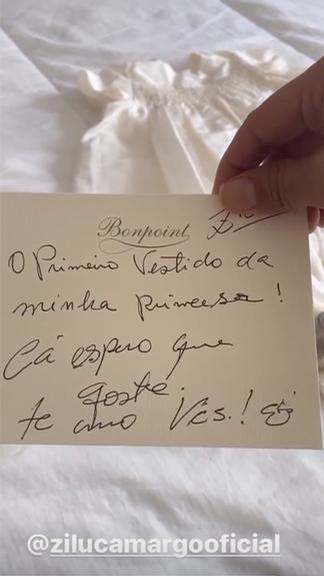 Bonpoint
O Primeiro Vestido da
minha princesa!
Cá espero que
goste.
te amo Vcs.!
@zilucamargooficial